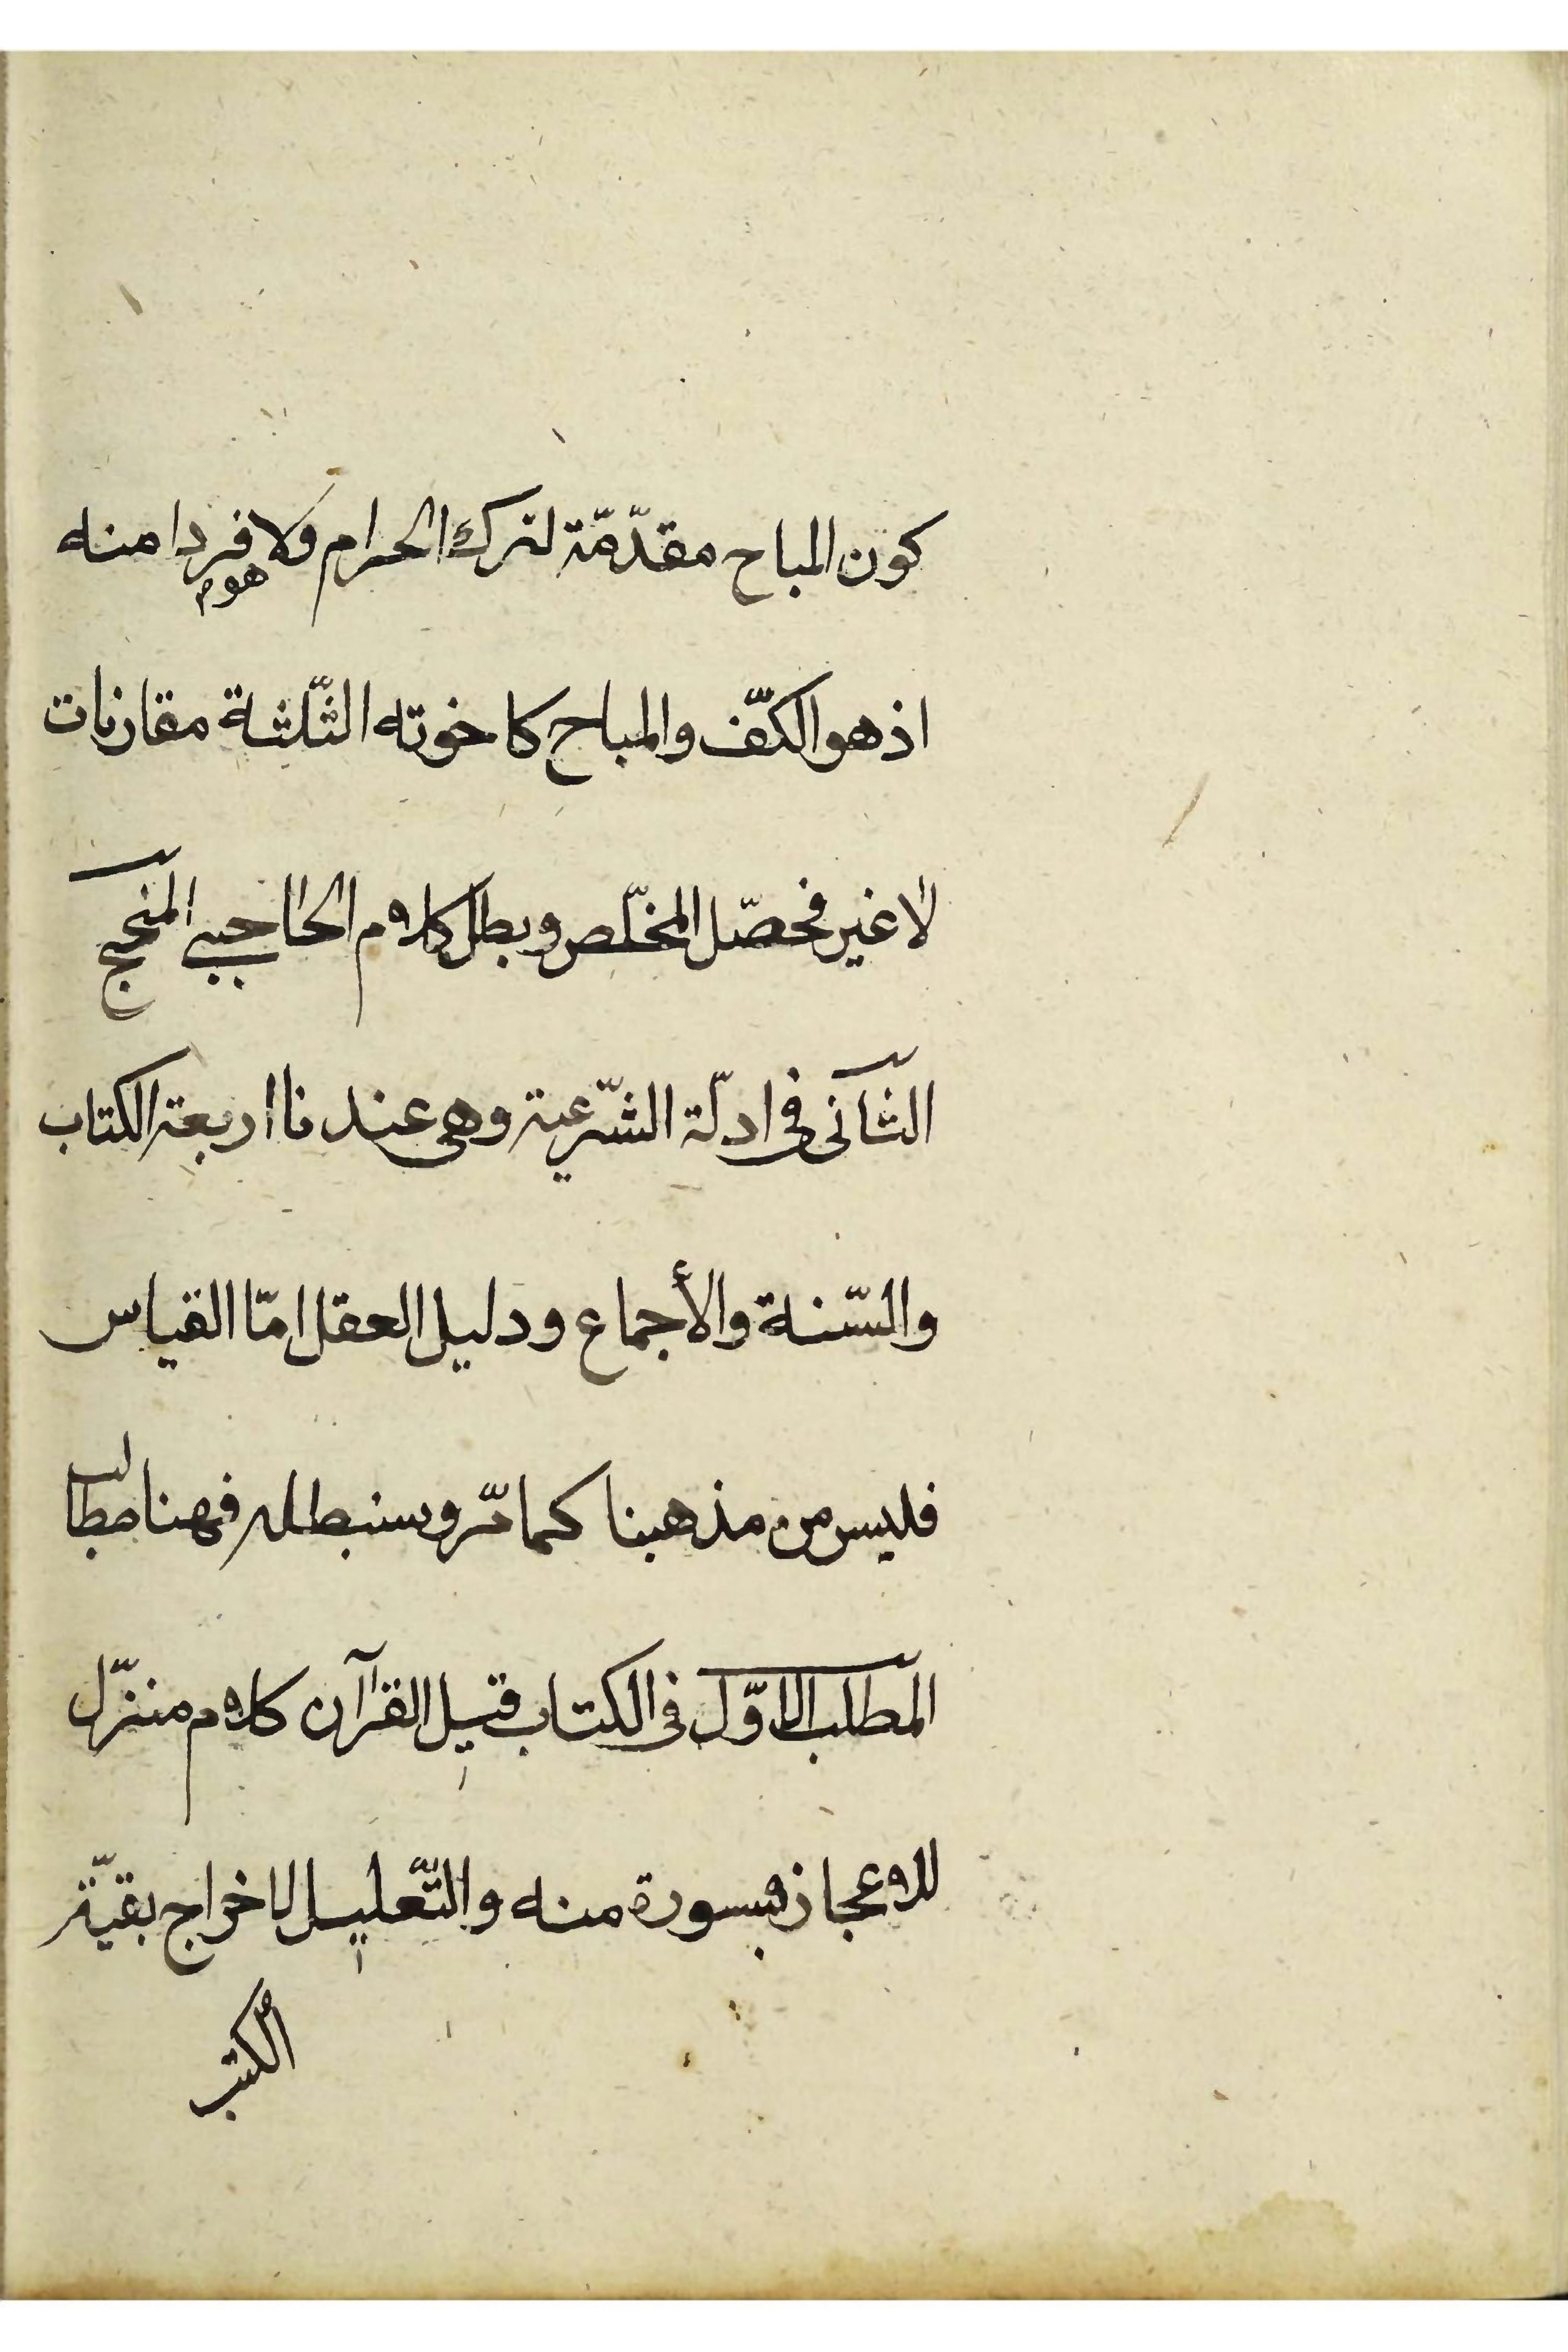 كون المباح مقدّمة لترك الحرام ولا فردا منه
هوم
اذ هو الكفّ والمباح كاخوته الثّلثة مقارنات
لا غير فحصّل المخلّص وبطل كلام الحاجبى المنهج
الثّانى فى ادلّة الشّرعية وهى عندنا اربعة الكتاب
والسّنة والأجماع ودليل العقل امّا القياس
فليس من مذهبنا كما مرّ وسنبطله فهنا مطالب
المطلب الاوّل فى الكتاب قيل القرآن كلام منزّل
للاعجاز بسورة منه والتّعليل لاخراج بقيّة
الكتب